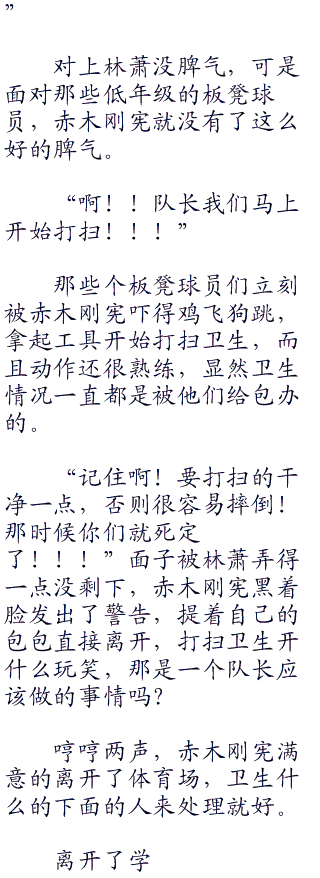 ”
对上林萧没脾气，可是
面对那些低年级的板凳球
员，赤木刚宪就没有了这么
好的脾气。
“啊！！队长我们马上
开始打扫！！！”
那些个板凳球员们立刻
被赤木刚宪吓得鸡飞狗跳，
拿起工具开始打扫卫生，而
且动作还很熟练，显然卫生
情况一直都是被他们给包办
的。
“记住啊！要打扫的干
净一点，否则很容易摔倒！
那时候你们就死定
了！！！”面子被林萧弄得
一点没剩下，赤木刚宪黑着
脸发出了警告，提着自己的
包包直接离开，打扫卫生开
什么玩笑，那是一个队长应
该做的事情吗？
哼哼两声，赤木刚宪满
意的离开了体育场，卫生什
么的下面的人来处理就好。
离开了学